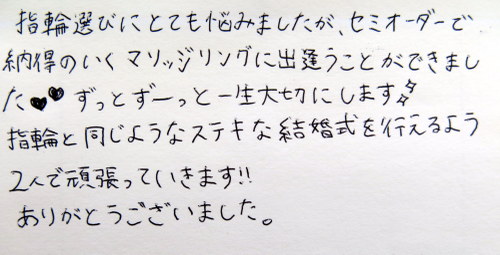 指輪選びにとても悩みましたが、セミオーダーで
納得のいくマリッジリングに出逢うことができまし
た♥♥ ずっとずーっと一生大切にします
指輪と同じようなステキな結婚式を行えるよう
2人で頑張っていきます!!
ありがとうございました。